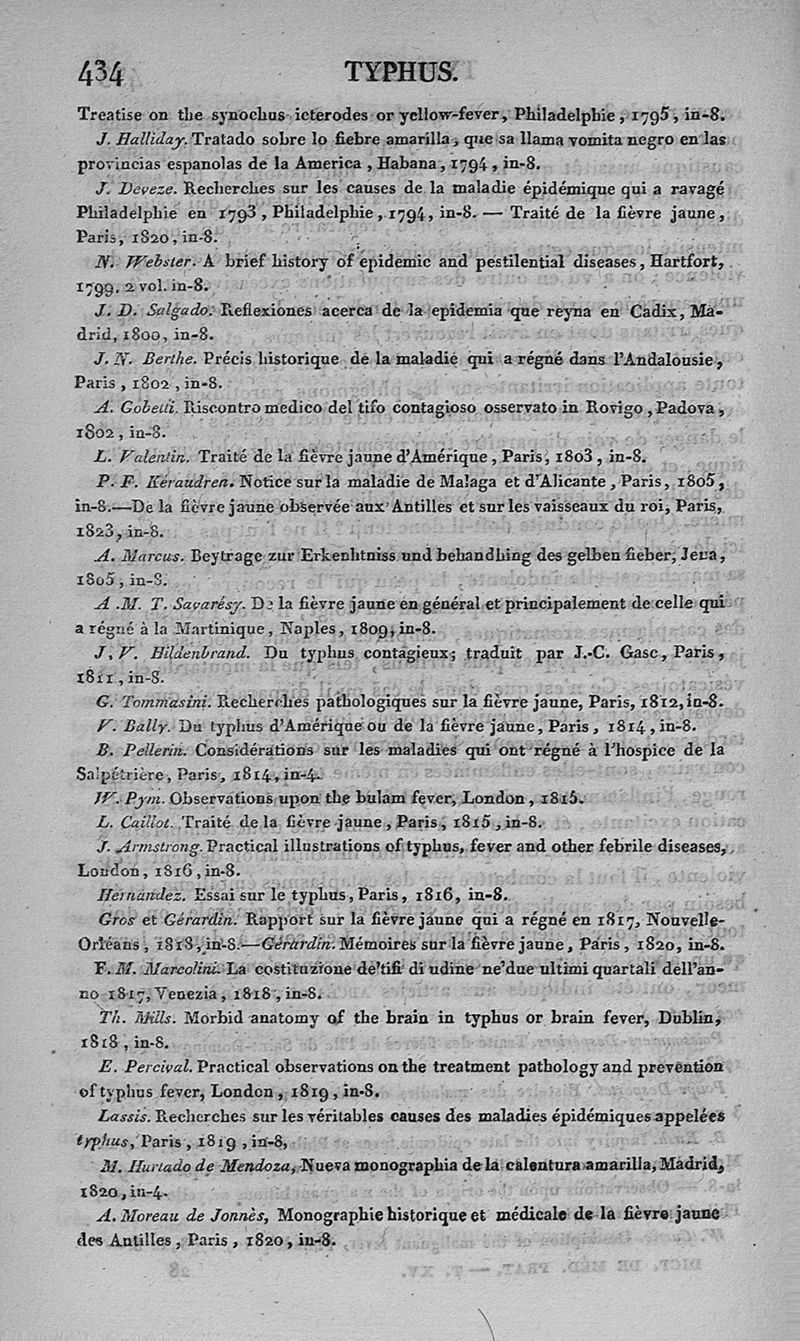 434 TYPHUS.
Treatise on the synochus icterodes or yellow-fever, Philadelphie, 1795, in-8.
J. Halliday. Tratado sobre lo fiebre amarilla, que sa llama vomita negro en las
provincias espanolas de la America, Habana, 1794, in-8.
J. Deveze. Recherches sur les causes de la maladie épidémique qui a ravagé
Philadelphie en 1793, Philadelphie, 1794, in-8. — Traité de la fièvre jaune,
Paris, 1820, in-8.
N. Webster. A brief history of epidemic and pestilential diseases, Hartfort,
1799. 2 vol. in-8.
J. D. Salgado. Reflexiones acerca de la epidemia que reyna en Cadix, Ma-
drid, 1800, in-8.
J. N. Berthe. Précis historique de la maladie qui a régné dans l'Andalousie,
Paris, 1802, in-8.
A. Gobetti. Riscontro medico del tifo contagioso osservato in Rovigo, Padova,
1802, in-8.
L. Valentin. Traité de la fièvre jaune d'Amérique, Paris, 1803, in-8.
P. F. Kéraudren. Notice sur la maladie de Malaga et d'Alicante, Paris, 1805,
in-8.—De la fièvre jaune observée aux Antilles et sur les vaisseaux du roi, Paris,
1823, in-8.
A. Marcus. Beytrage zur Erkenhtniss und behandhing des gelben fieber, Jena,
1805, in-8.
A .M. T. Savarésy. De la fièvre jaune en général et principalement de celle qui
a régné à la Martinique, Naples, 1809, in-8.
J. V. Hildenbrand. Du typhus contagieux; traduit par J.-C. Gasc, Paris,
1811, in-8.
G. Tommasini. Recherches pathologiques sur la fièvre jaune, Paris, 1812, in-8.
V. Bally. Du typhus d'Amérique ou de la fièvre jaune, Paris, 1814, in-8.
B. Pellerin. Considérations sur les maladies qui ont régné à l'hospice de la
Salpétrière, Paris, 1814, in-4.
W. Pym. Observations upon the bulam fever, London, 1815.
L. Caillot. Traité de la fièvre jaune, Paris, 1815, in-8.
J. Armstrong. Practical illustrations of typhus, fever and other febrile diseases,
London, 1816, in-8.
Hernandez. Essai sur le typhus, Paris, 1816, in-8.
Gros et Gérardin. Rapport sur la fièvre jaune qui a régné en 1817, Nouvelle-
Orléans, 1818, in-8.—Gérardin. Mémoires sur la fièvre jaune, Paris, 1820, in-8.
F. M. Marcolini. La costituzione de'tifi di udine ne'due ultimi quartali dell'an-
no 1817, Venezia, 1818, in-8.
Th. Mills. Morbid anatomy of the brain in typhus or brain fever, Dublin,
1818, in-8.
E. Percival. Practical observations on the treatment pathology and prevention
of typhus fever, London, 1819, in-8.
Lassis. Recherches sur les véritables causes des maladies épidémiques appelées
typhus, Paris, 1819, in-8,
M. Hurtado de Mendoza, Nueva monographia de la calentura amarilla, Madrid,
1820, in-4.
A. Moreau de Jonnès, Monographie historique et médicale de la fièvre jaune
des Antilles, Paris, 1820, in-8.